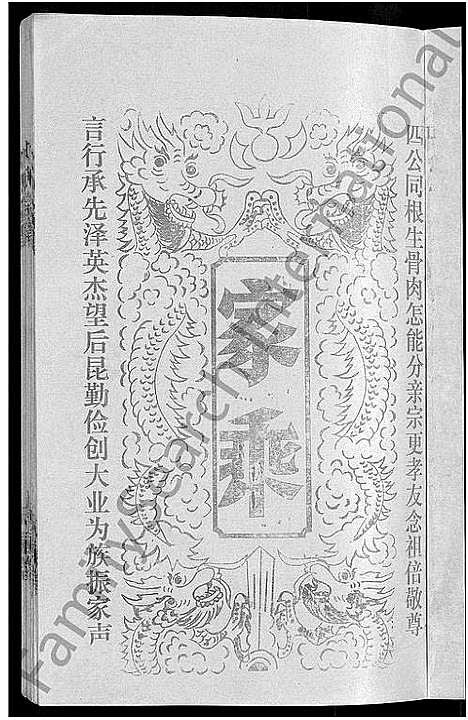 四公同根生骨肉怎能分亲宗更孝友念祖倍敬尊
家乘
言行承先泽英杰望后昆勤俭创大业为族振家声
FamilySearch International